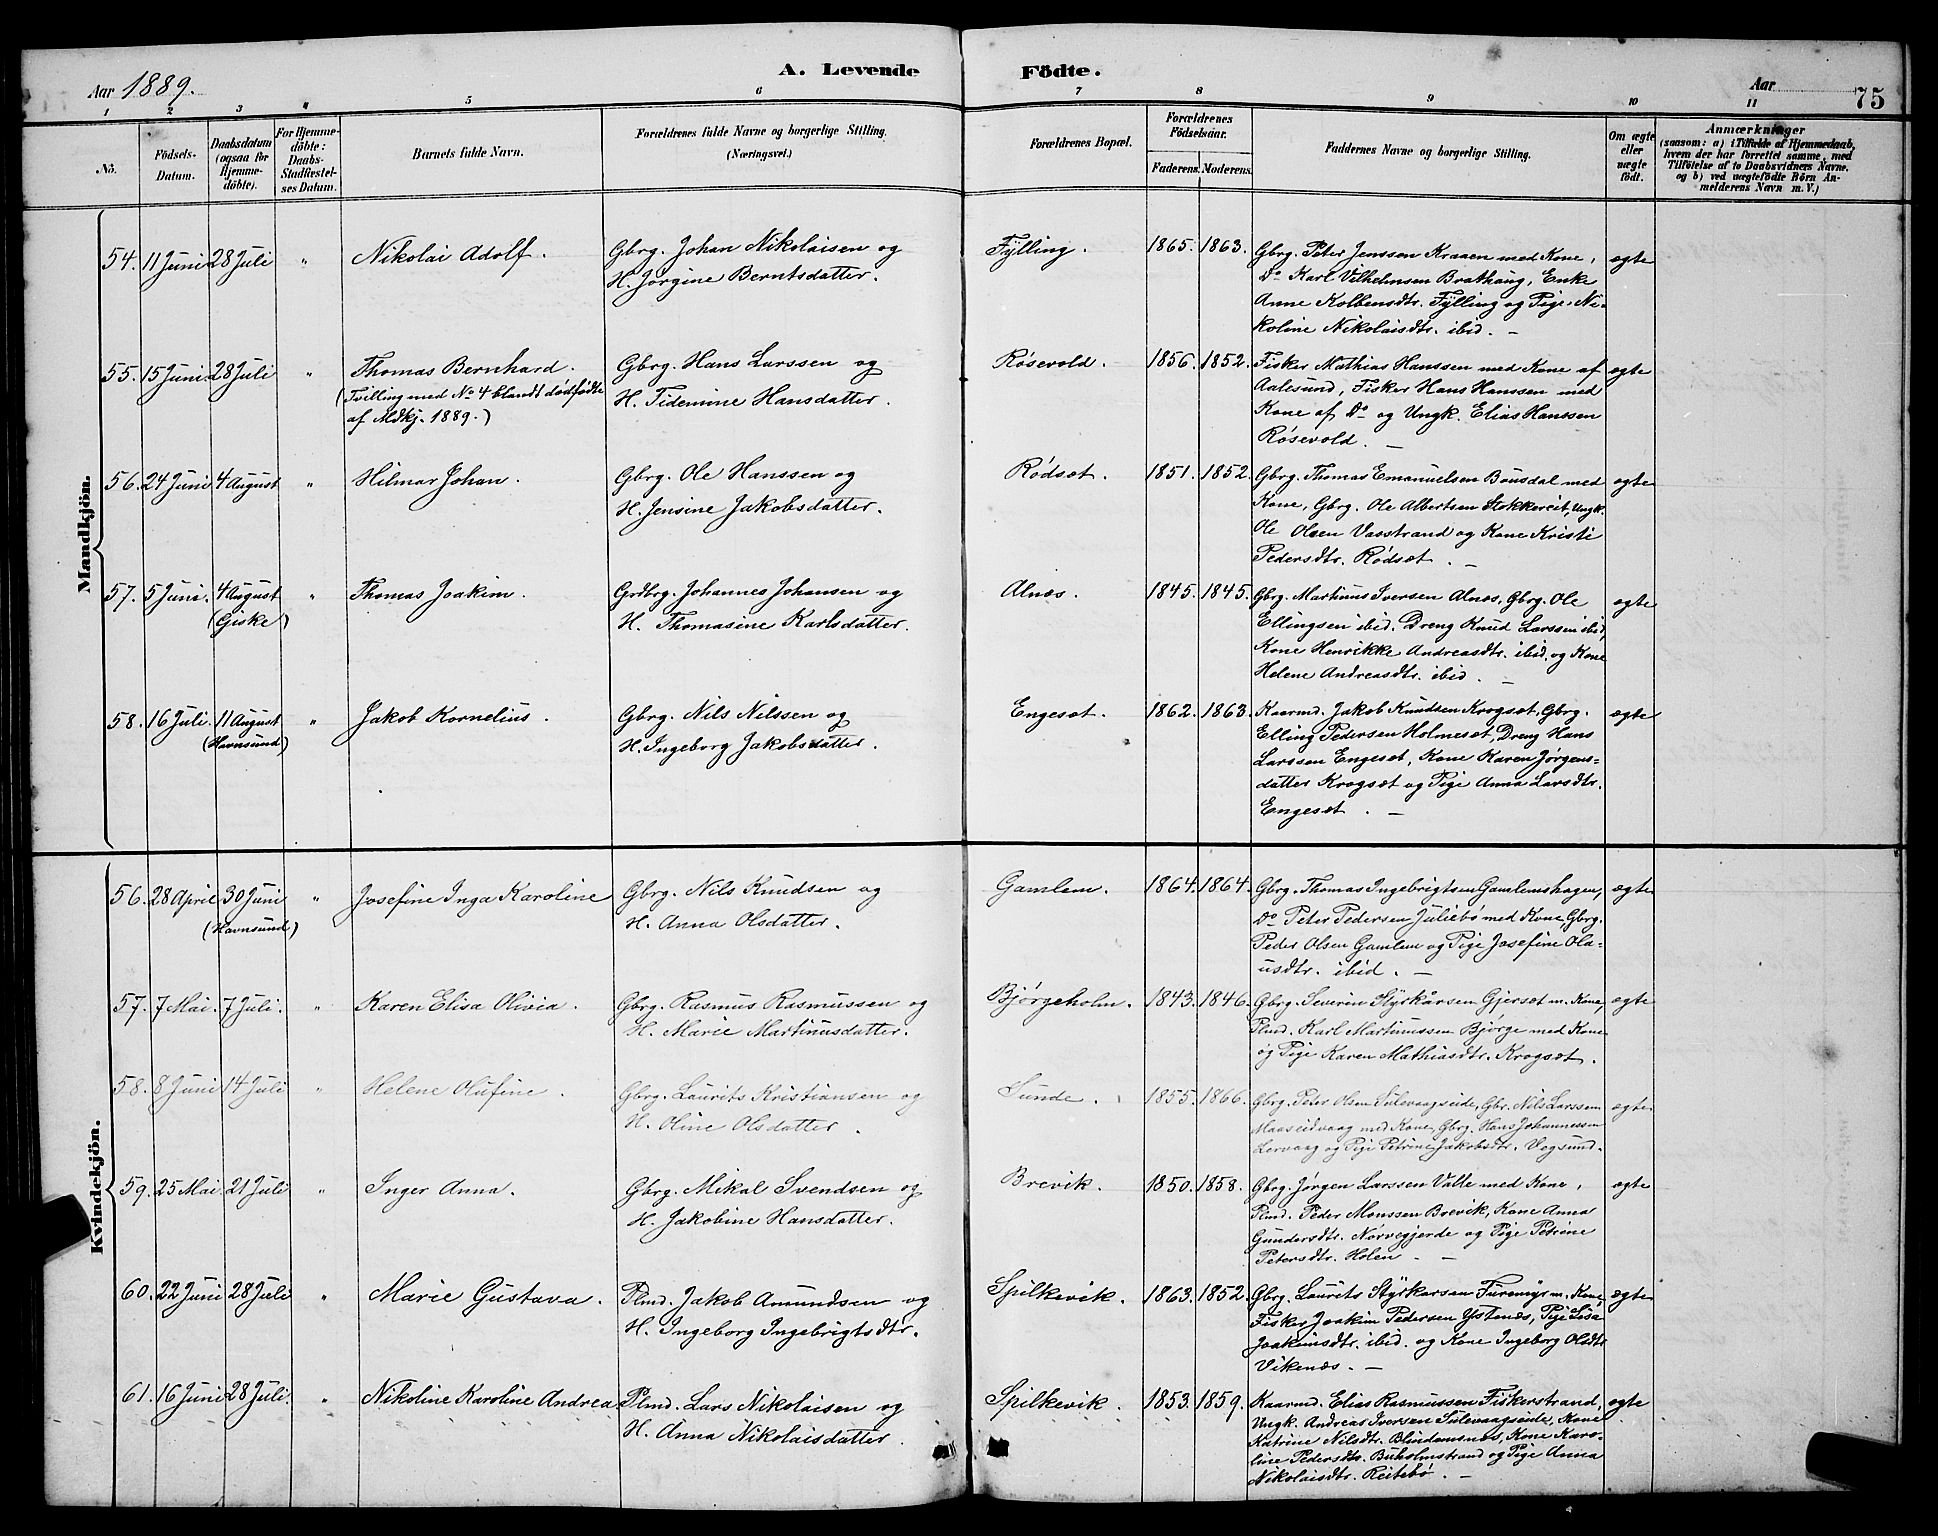 Aar 1889.
A. Levende Födte.
Aar
75
1 2 3 " 5 6 7 8 9 10 11
No.
Födsels-Datum.
Daabsdatum (ogsaa for Hjemme-döbte).
For Hjemme-döbte: Daabs-Stadfæstel-ses Datum.
Barnets fulde Navn.
Forældrenes fulde Navne og borgerlige Stilling. (Næringsvei.)
Forældrenes Bopæl.
Forældrenes Födselsaar.
Faderens. Moderens.
Faddernes Navne og borgerlige Stilling.
Om ægte eller uægte födt.
Anmærkninger
(saasom: a) i Tilfælde af Hjemmedaab,
hvem der har forrettet samme, med
Tilföielse af to Daabsvidners Navne,
og b) ved uægtefödte Börn An-
melderens Navn m. V.)
Mandkjön.
54. 11 Juni 28 Juli " Nikolai Adolf. Gbrg. Johan Nikolaisen og Fylling. 1865. 1863. Gbrg. Peter Jenssen Kraaen med Kone, ægte
H. Jørgine Berntsdatter. Do Karl Vilhelmsen Brathaug, Enke
Anne Kolbensdtr. Fylling og Pige Ni-
koline Nikolaisdtr. ibid. —
55. 15 Juni 28 Juli " Thomas Bernhard. Gbrg. Hans Larssen og Røsevold. 1856. 1852. Fisker Mathias Hanssen med Kone af ægte
(Tvilling med No 4 blandt dødfødte H. Tidemine Hansdatter. Aalesund, Fisker Hans Hanssen med
af Mdkj. 1889.) Kone af Do og Ungk. Elias Hanssen
Røsevold. —
56. 24 Juni 4 August " Hilmar Johan. Gbrg. Ole Hanssen og Rødset. 1851. 1852. Gbrg. Thomas Emanuelsen Bousdal med ægte
H. Jensine Jakobsdatter. Kone, Gbrg. Ole Albertsen Stokkereit, Ungk.
Ole Olsen Vasstrand og Kone Kristi
Pedersdtr. Rødset. —
57. 5 Juni. 4 August " Thomas Joakim. Grdbrg. Johannes Johansen og Alnæs. 1845. 1845. Gbrg. Martinus Iversen Alnæs, Gbrg. Ole ægte
(Giske) H. Thomasine Karlsdatter. Ellingsen ibid. Dreng Knud Larssen ibid,
Kone Henrikke Andreasdtr. ibid. og Kone
Helene Andreasdtr. ibid. —
58. 16 Juli. 11 August " Jakob Kornelius. Gbrg. Nils Nilssen og Engeset. 1862. 1863. Kaarmd. Jakob Knudsen Krogsæt, Gbrg. ægte
(Havnsund) H. Ingeborg Jakobsdatter. Elling Pedersen Holmeset, Dreng Hans
Larssen Engeset, Kone Karen Jørgens=
datter Krogsæt og Pige Anna Larsdtr.
Engesæt. —
Kvindekjön.
56. 28 April 30 Juni " Josefine Inga Karoline Gbrg. Nils Knudsen og Gamlem. 1864. 1864. Gbrg. Thomas Ingebrigtsen Gamlemshagen, ægte
(Havnsund) H. Anna Olsdatter. Do Peter Pedersen Juliebø med Kone, Gbrg.
Peder Olsen Gamlem og Pige Josefine Ola-
usdtr. ibid. —
57. 7 Mai. 7 Juli. " Karen Elisa Olivia. Gbrg. Rasmus Rasmussen og Bjørgeholm. 1843. 1846. Gbrg. Severin Styrkårsen Gjerset m. Kone, ægte
H. Marie Martinusdatter. Plmd. Karl Martinussen Bjørge med Kone
og Pige Karen Mathiasdtr. Krogsæt.
58. 8 Juni 14 Juli " Helene Olufine. Gbrg. Laurits Kristiansen og Sunde. 1855. 1866. Gbrg. Peter Olsen Sulevaagseide, Gbr. Nils Larssen ægte
H. Oline Olsdatter. Maaseidvaag med Kone, Gbrg. Hans Johannessen
Lervaag og Pige Petrine Jakobsdtr. Vegsund.
59. 25 Mai 21 Juli " Inger Anna. Gbrg. Mikal Svendsen og Brevik. 1850. 1858. Gbrg. Jørgen Larssen Valle med Kone, ægte
H. Jakobine Hansdatter. Plmd. Peder Monssen Brevik, Kone Anna
Gundersdtr. Nørvegjerde og Pige Petrine
Petersdtr. Holen —
60. 22 Juni 28 Juli " Marie Gustava. Plmd. Jakob Amundsen og Spilkevik. 1863. 1852. Gbrg. Laurits Styrkarsen Furemyr m. Kone, ægte
H. Ingeborg Ingebrigtsdtr. Fisker Joakim Pedersen Ystenæs, Pige Lisa
Joakimsdtr. ibid. og Kone Ingeborg Olsdtr.
Vikenæs. —
61. 16 Juni 28 Juli. " Nikoline Karoline Andrea Plmd. Lars Nikolaisen og Spilkevik. 1853. 1859. Kaarmd. Elias Rasmussen Fiskerstrand, ægte
H. Anna Nikolaisdatter. Ungk. Andreas Iversen Sulevaagseide, Kone
Katrine Nilsdtr. Blindemsnes, Kone Karo-
line Pedersdtr. Buholmstrand og Pige Anna
Nikolaisdtr. Reitebø. —